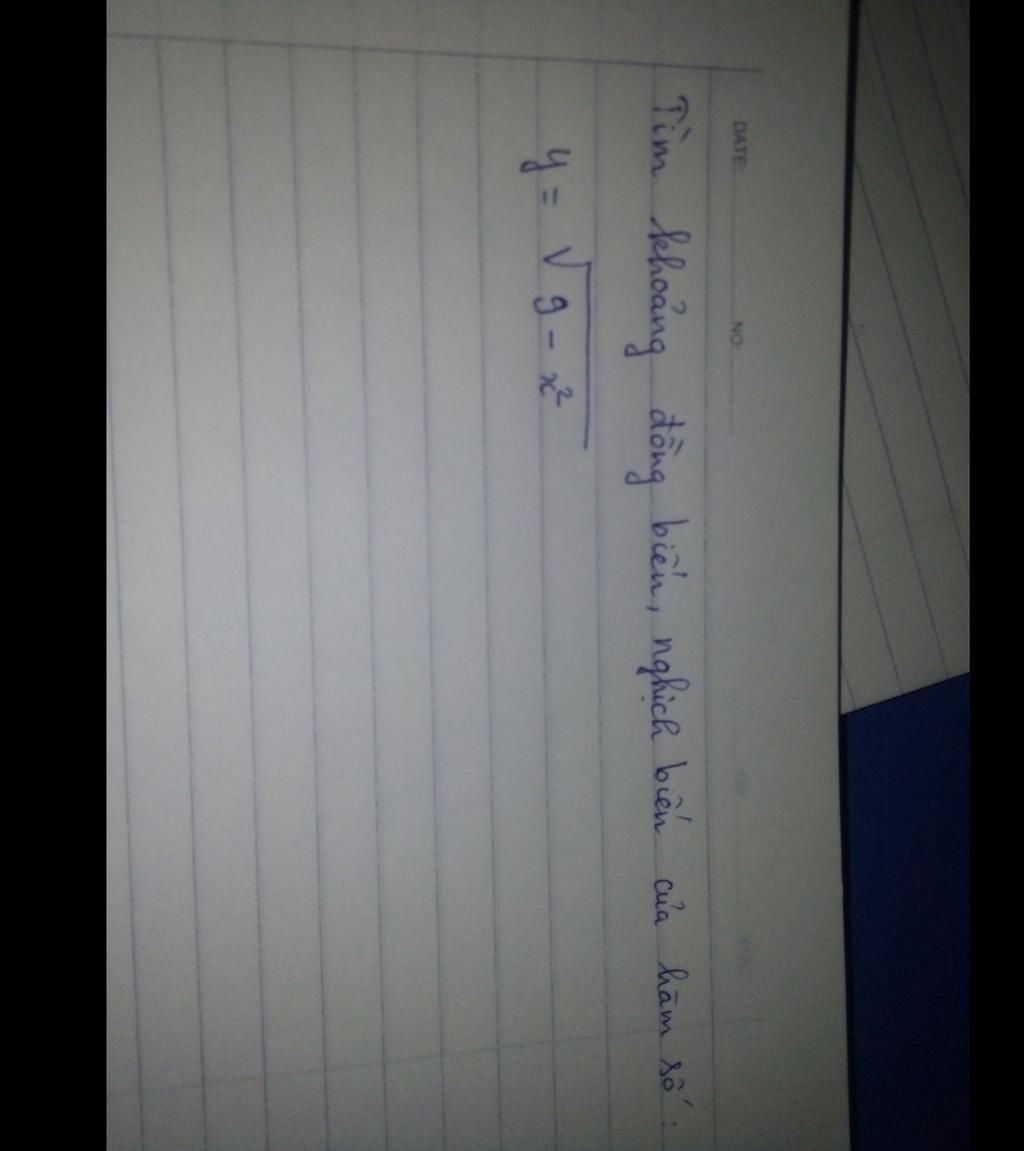 DATE: NO:
Tìm khoảng đồng biến, nghịch biến của hàm số:
y = √9 - x²